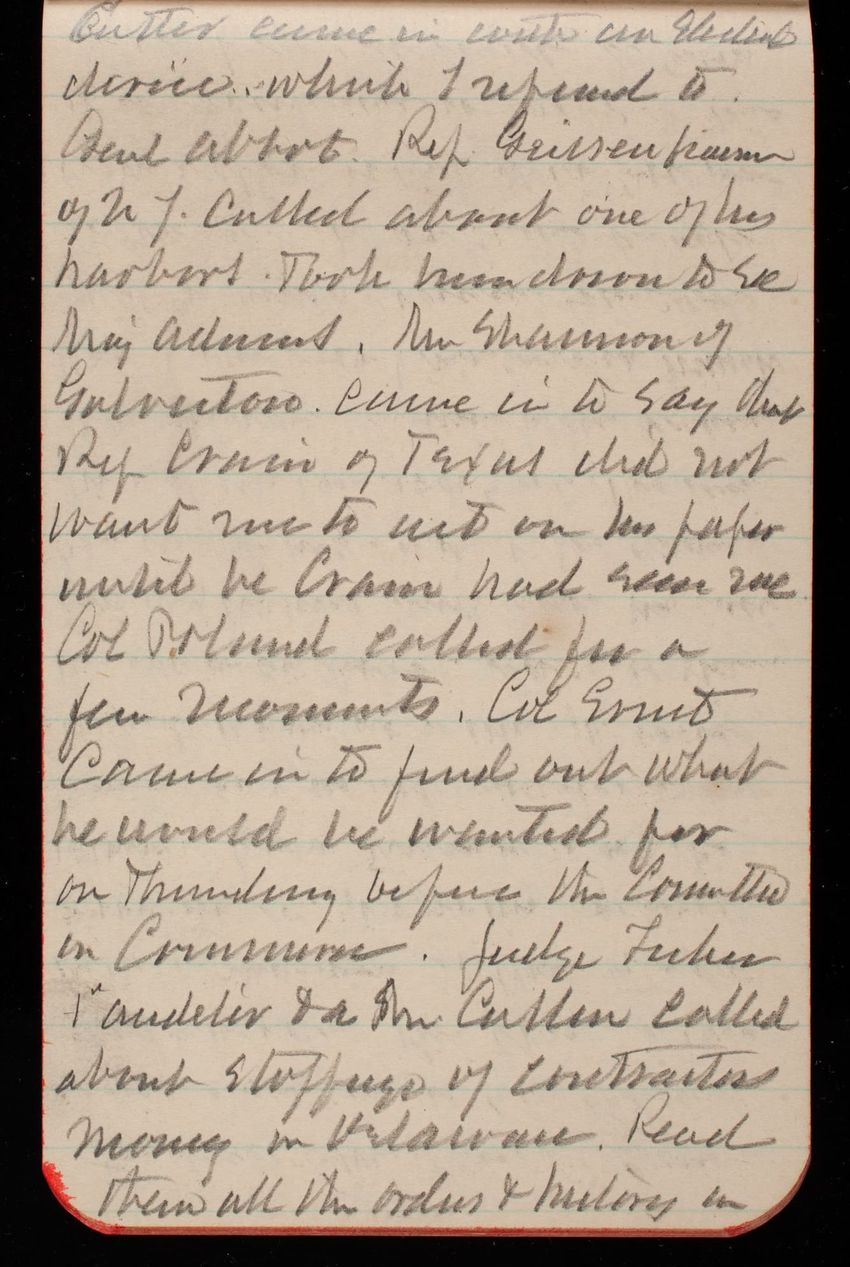 Cutter came in with an Elected
device which I referred to
Genl Abbot. Rep Geissenhainer
of N J. Called about one of his
harbors. Took him down to see
Maj Adams. Mr Shannon of
Galveston. came in to say that
Rep Crain of Texas did not
want me to act on his paper
until he Crain had seen me
Col Poland called for a
few moments. Col Ernst
Came in to find out what
he would be wanted for
on Thursday before the Committee
on Commerce. Judge Fisher
& a Mr Cullen called
about Stoppage of contractors
money in Delaware. Read
them all the orders & history in